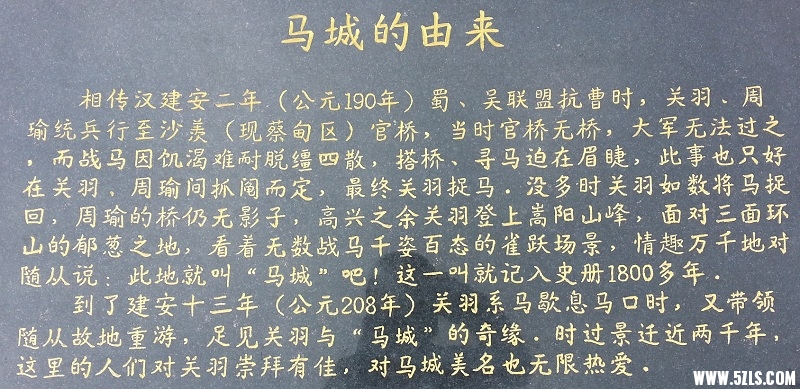 马城的由来
相传汉建安二年（公元190年）蜀、吴联盟抗曹时，关羽、周
瑜统兵行至沙羡（现蔡甸区）官桥，当时官桥无桥，大军无法过之
，而战马因饥渴难耐脱缰四散，搭桥、寻马迫在眉睫，此事也只好
在关羽、周瑜间抓阄而定，最终关羽捉马．没多时关羽如数将马捉
回，周瑜的桥仍无影子，高兴之余关羽登上嵩阳山峰，面对三面环
山的郁葱之地，看着无数战马千姿百态的雀跃场景，情趣万千地对
随从说：此地就叫“马城”吧！这一叫就记入史册1800多年．
到了建安十三年（公元208年）关羽系马歇息马口时，又带领
随从故地重游，足见关羽与“马城”的奇缘．时过景迁近两千年，
这里的人们对关羽崇拜有佳，对马城美名也无限热爱．
WWW.5ZLS.COM